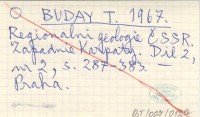 BUDAY T. 1967.
Regionalni geologie ČSSR.
Zapadnie Karpaty. Dil 2,
nr 2, s. 287-383. —
Praha.